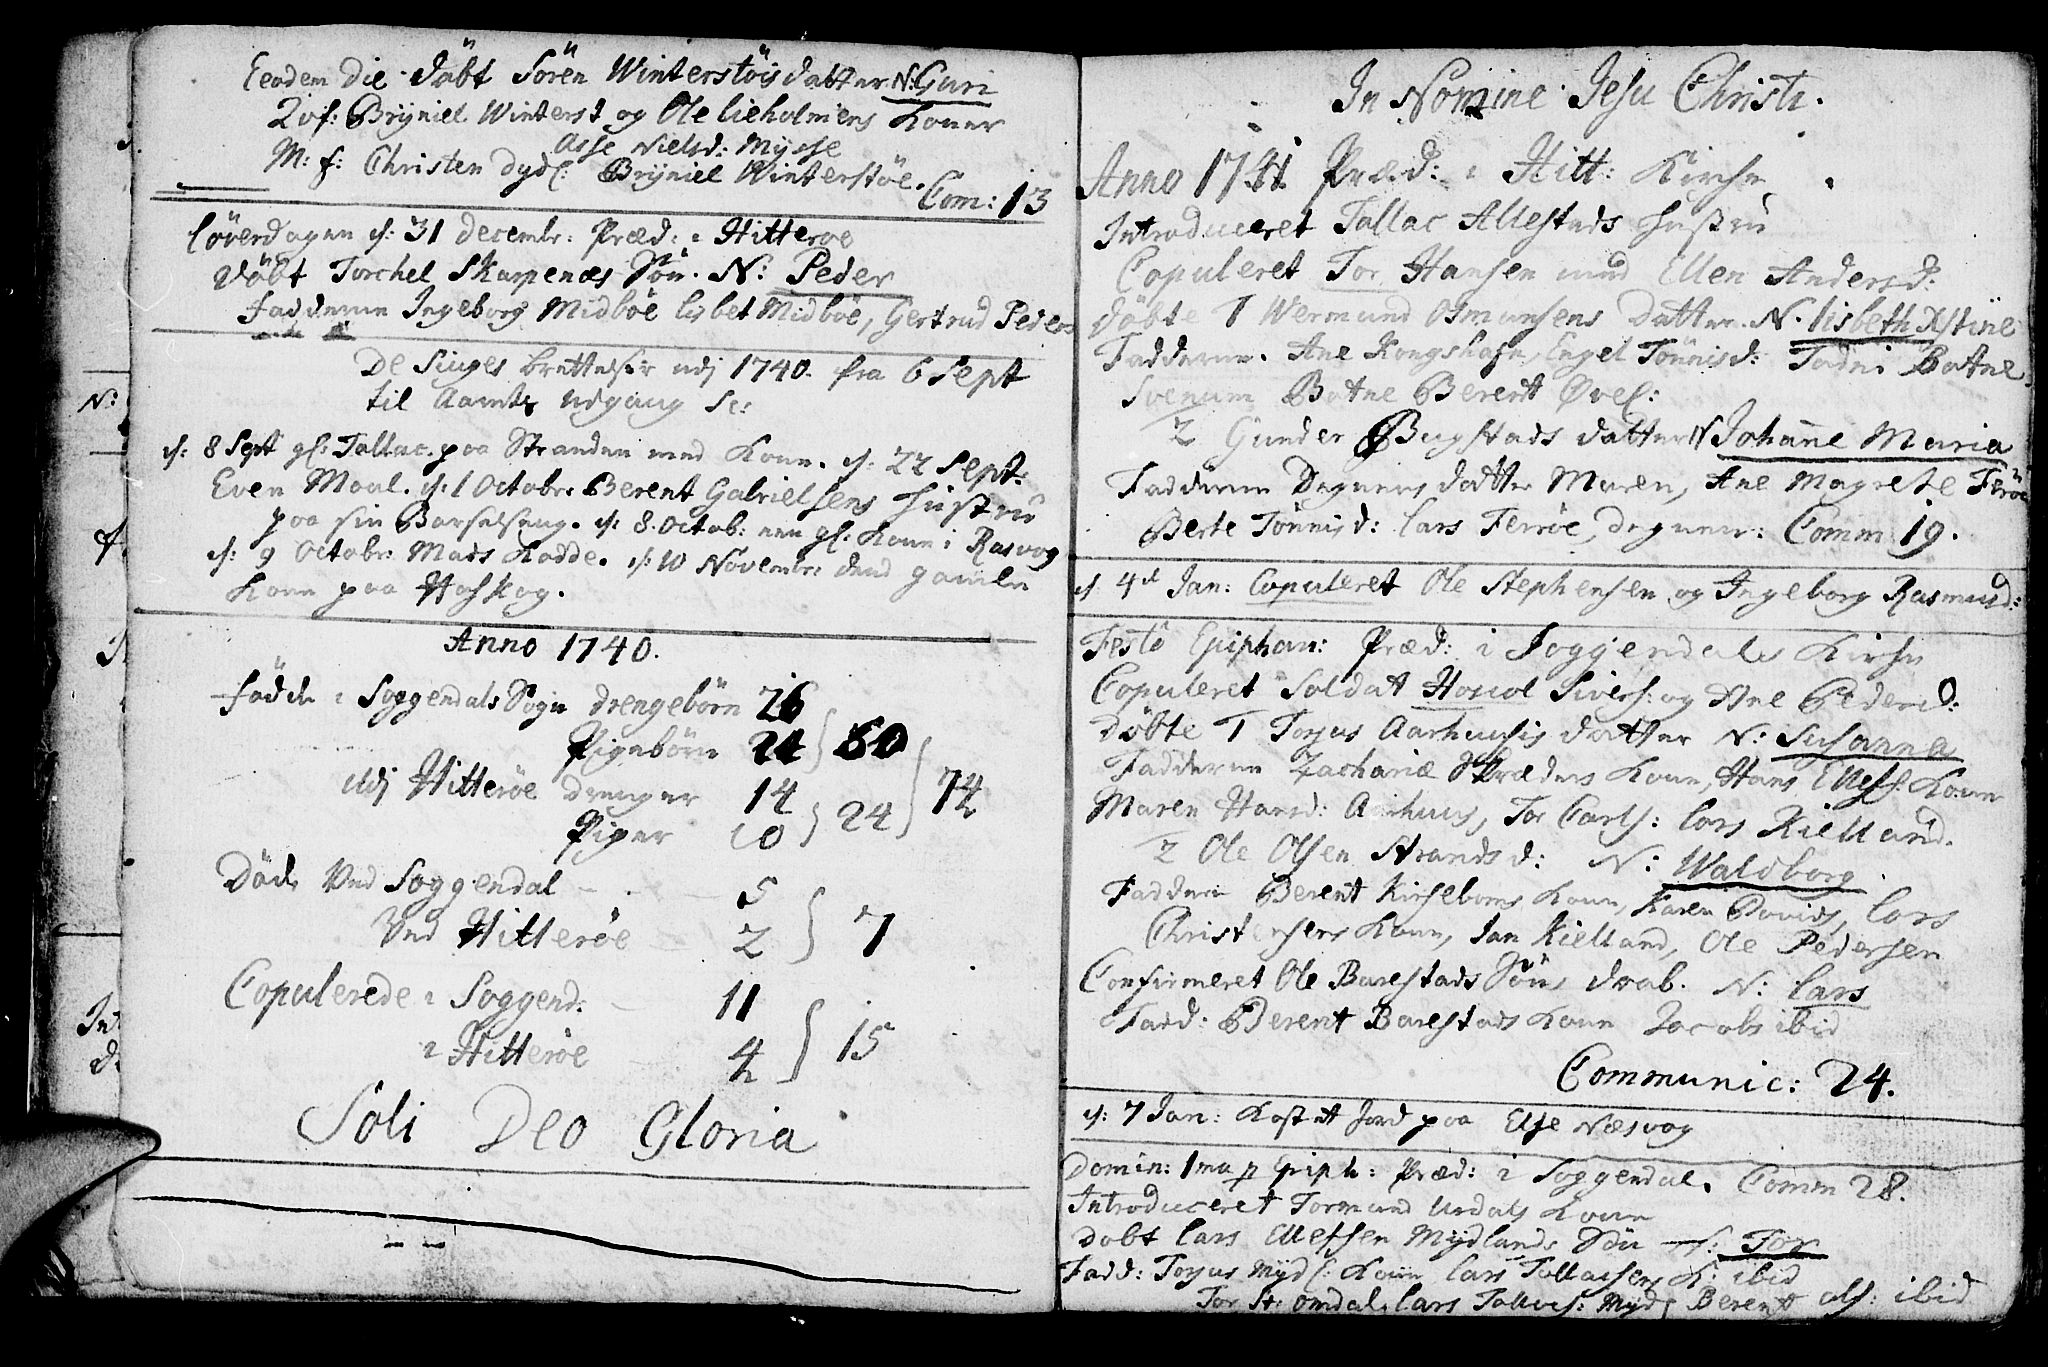 Eodem Die døbt Sören Winterstöis datter N: Guri
2 of: Bryniel Winterst og Ole lieholmens Koner
Asse Nielsd: Mysse
M: f: Christen Dydl: Bryniel Winterstöe.
Com: 13
Löverdagen d: 31 Decembr: Præd: i Hitteroe
döbt Torchel Skarpenæs Sön. N: Peder
Fadderne Ingeborg Midböe lisbet Midböe, Gertrud Peders
De Siuges berettelser udj 1740. fra 6 Sept
til Aarets udgang Sc:
d: 8 Sept gl: Tallac paa Stranden med Kone. d: 22 Sept.
Even Moal. d: 1 Octobr. Berent Gabrielsens Hustru
paa sin Barselseng. d: 8. Octob: een gl: Kone i Rasvog
d: 9 Octobr: Mads Kodde. d: 10 Novembr: dend gamle
Kone paa Hafskog.
Anno 1740.
Födde i Soggendals Sogn drengebörn 26
Pigebörn 24 } 50
Udj Hitteröe Drenger 14
Piger 10 } 24 } 74
Döde Ved Soggendal - - - 5
Ved Hitteröe - 2 } 7
Copulerede i Soggend: - 11
i Hitteröe - 4 } 15
Soli Deo Gloria
In Nomine Jesu Christi.
Anno 1741 Præd: i Hitt: Kirke
Introduceret Tallac Allestads Hustru
Copuleret Tor Hansen med Ellen Andersd:
Döbte 1 Wermund Osmunsens Datter. N. lisbeth Xstine
Fadderne. Ane Kongshafn, Engel Tönnisd: Todni Botne
Svenum Botne Berent Øvel:
2 Gunder Bugstads datter N Johanne Maria
Fadderne Degnens datter Maren, Ane Magrete Feröe
Berte Tönnisd: Lars Ferröe, degnen: Comm: 19.
d. 4d Jan: Copuleret Ole Stephensen og Ingeborg Rasmusd:
Festo Epiphan: Præd: i Soggendals Kirke
Copuleret Soldat Sivers: og Ane Pedersd:
Döbte 1 Torjus Aarhuusis datter N: Susanna
Fadderne Zachariæ Skræders Kone, Hans Ellefs: Kone
Maren Hansd: Aarhuus, Tor Carls: Lars Kielland.
2 Ole Olsen Strands d: N: Waldborg.
Faddere Berent Kirseboms Kone, Karen Davids, Lars
Christensens Kone, Jan Kielland, Ole Pedersen
Confirmeret Ole Barestads Söns daab. N: Lars
Fadd: Berent Barestads Kone Jacobs ibid
Communic: 24.
d: 7 Jan: Kastet Jord paa Else Næsvog
Domin: 1ma p Epiph: Præd: i Soggendal. Comm 28.
Introduceret Tormund Urdals Kone
Döbt Lars Ellefsen Mydlands Sön N: Tor
Fadd: Torjus Mydl: Kone Lars Tollacsens K: ibid
Tor St: omdal, Lars Tollacs: Mydl Berent Ols: ibid